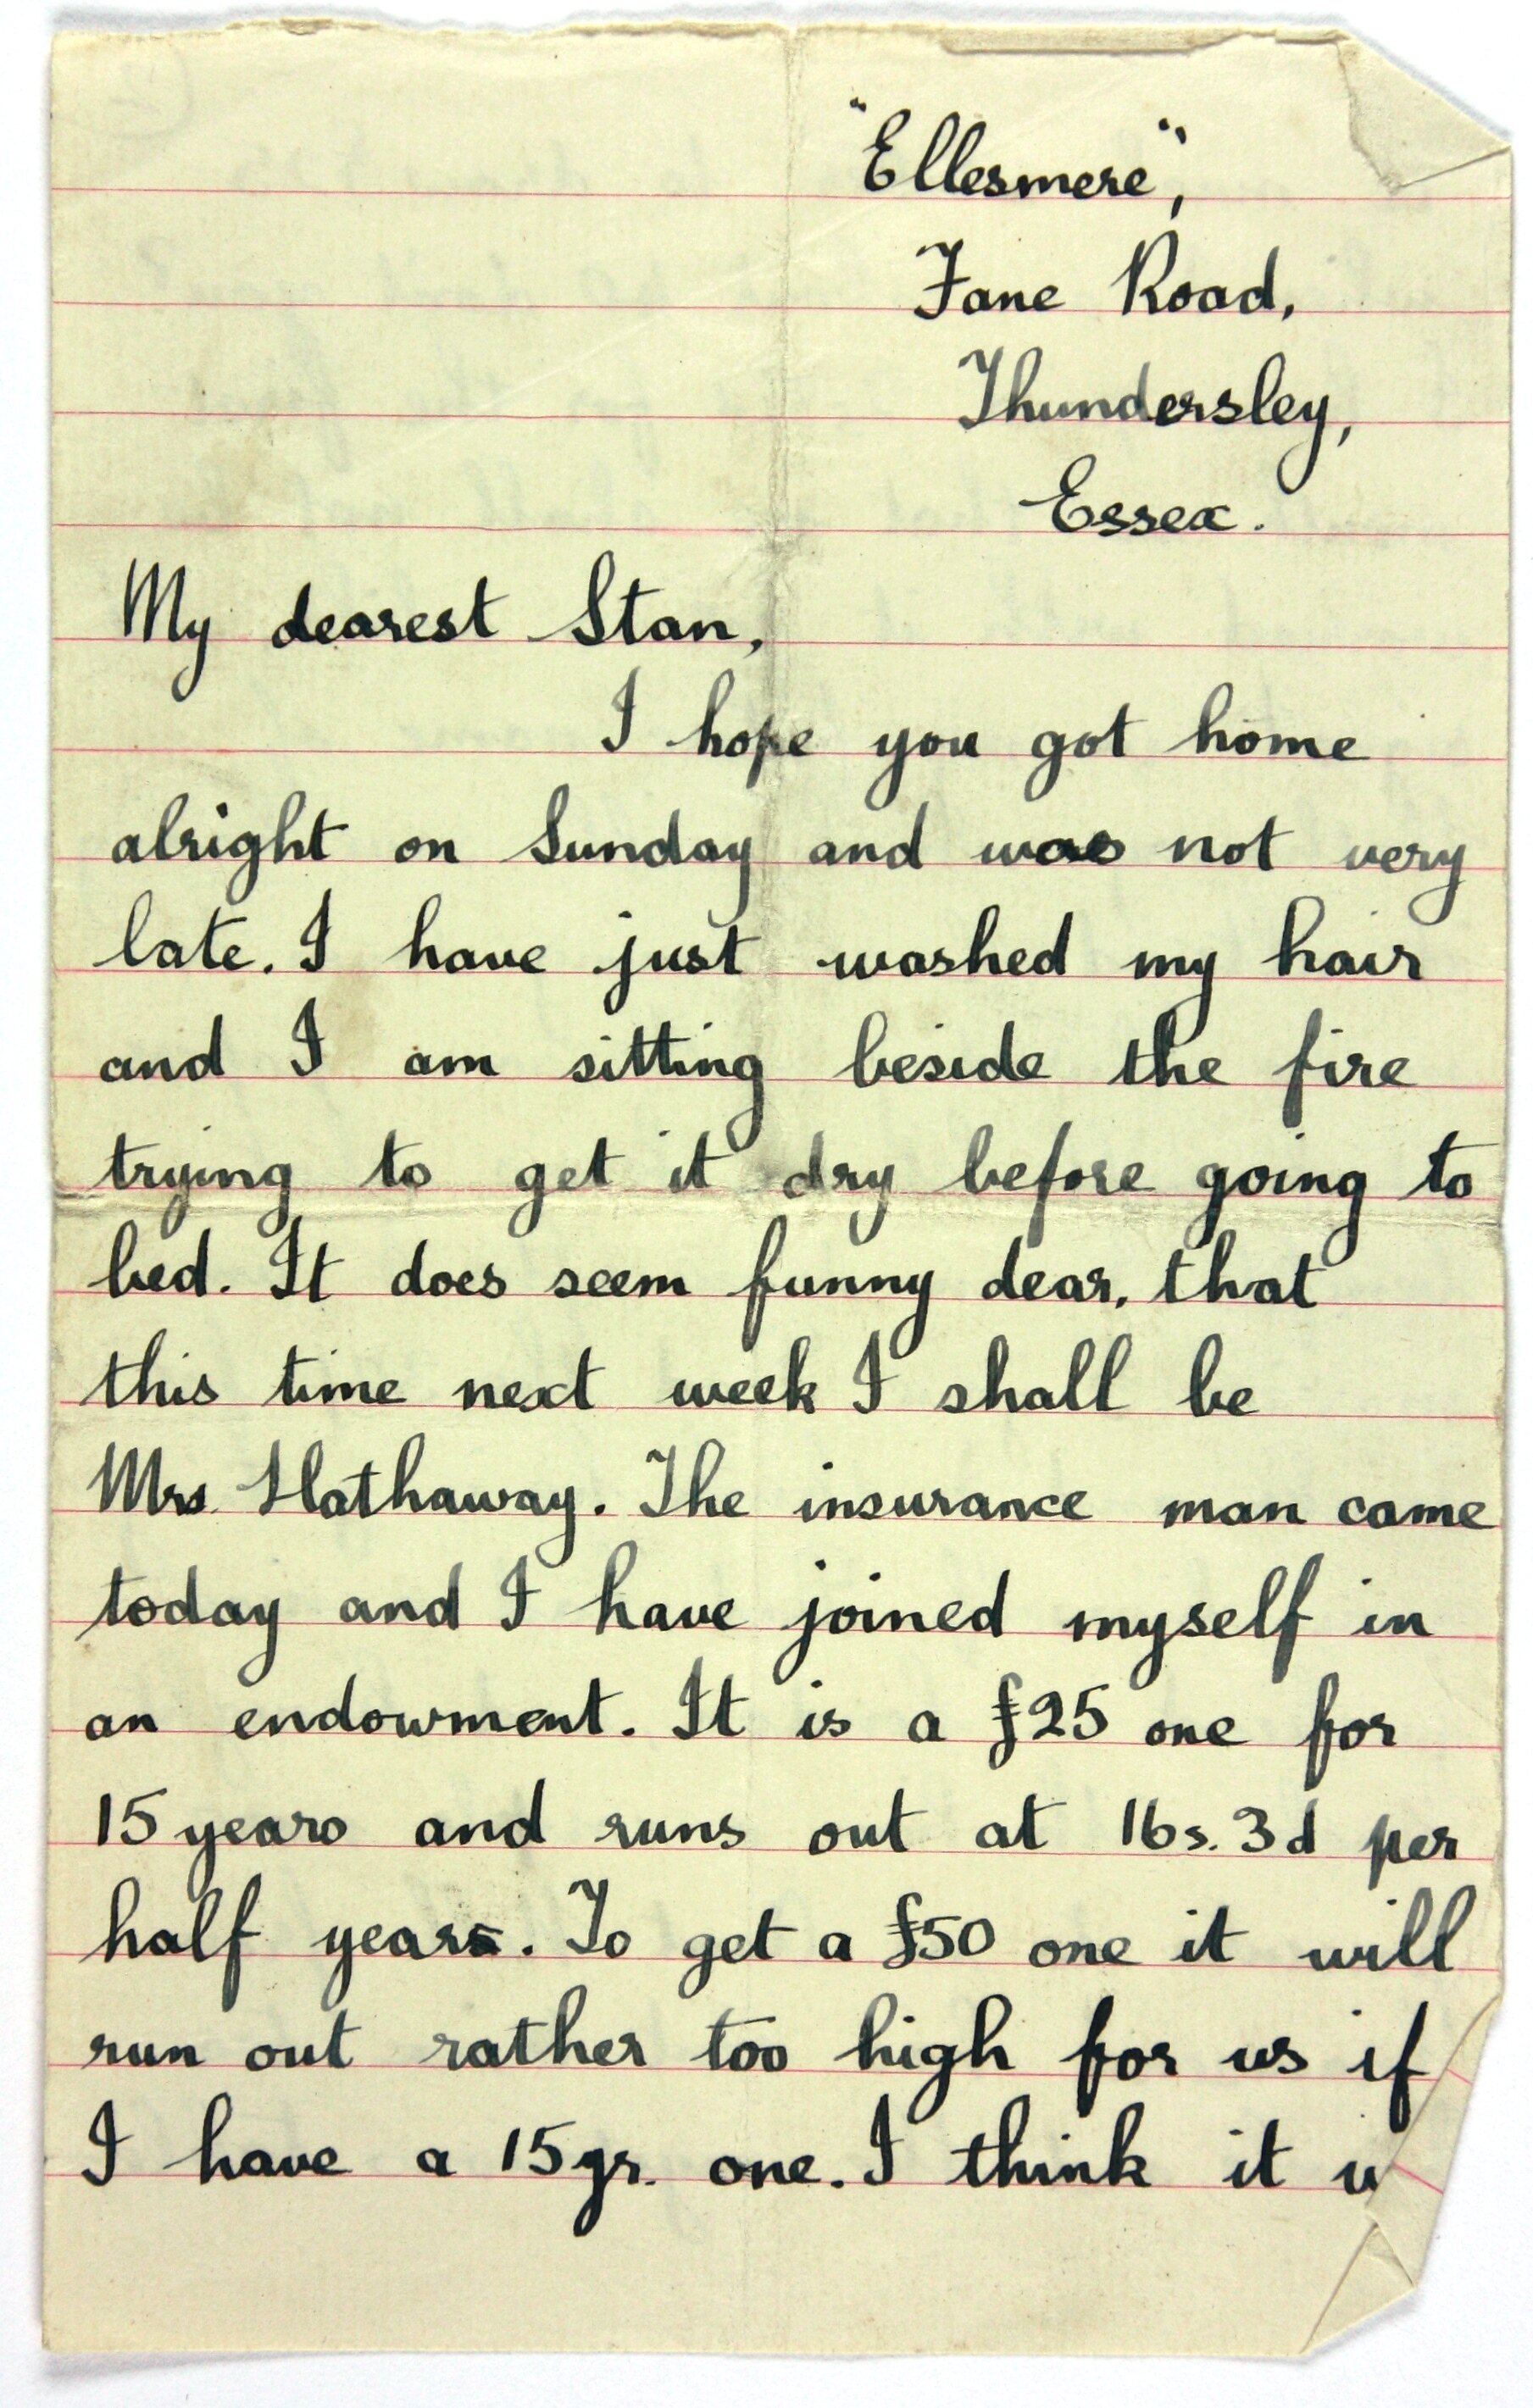 "Ellesmere",
Fane Road,
Thundersley,
Essex.
My dearest Stan,
I hope you got home
alright on Sunday and was not very
late. I have just washed my hair
and I am sitting beside the fire
trying to get it dry before going to
bed. It does seem funny dear, that
this time next week I shall be
Mrs. Hathaway. The insurance man came
today and I have joined myself in
an endowment. It is a £25 one for
15 years and runs out at 16s. 3d per
half year. To get a £50 one it will
run out rather too high for us if
I have a 15 yr. one. I think it